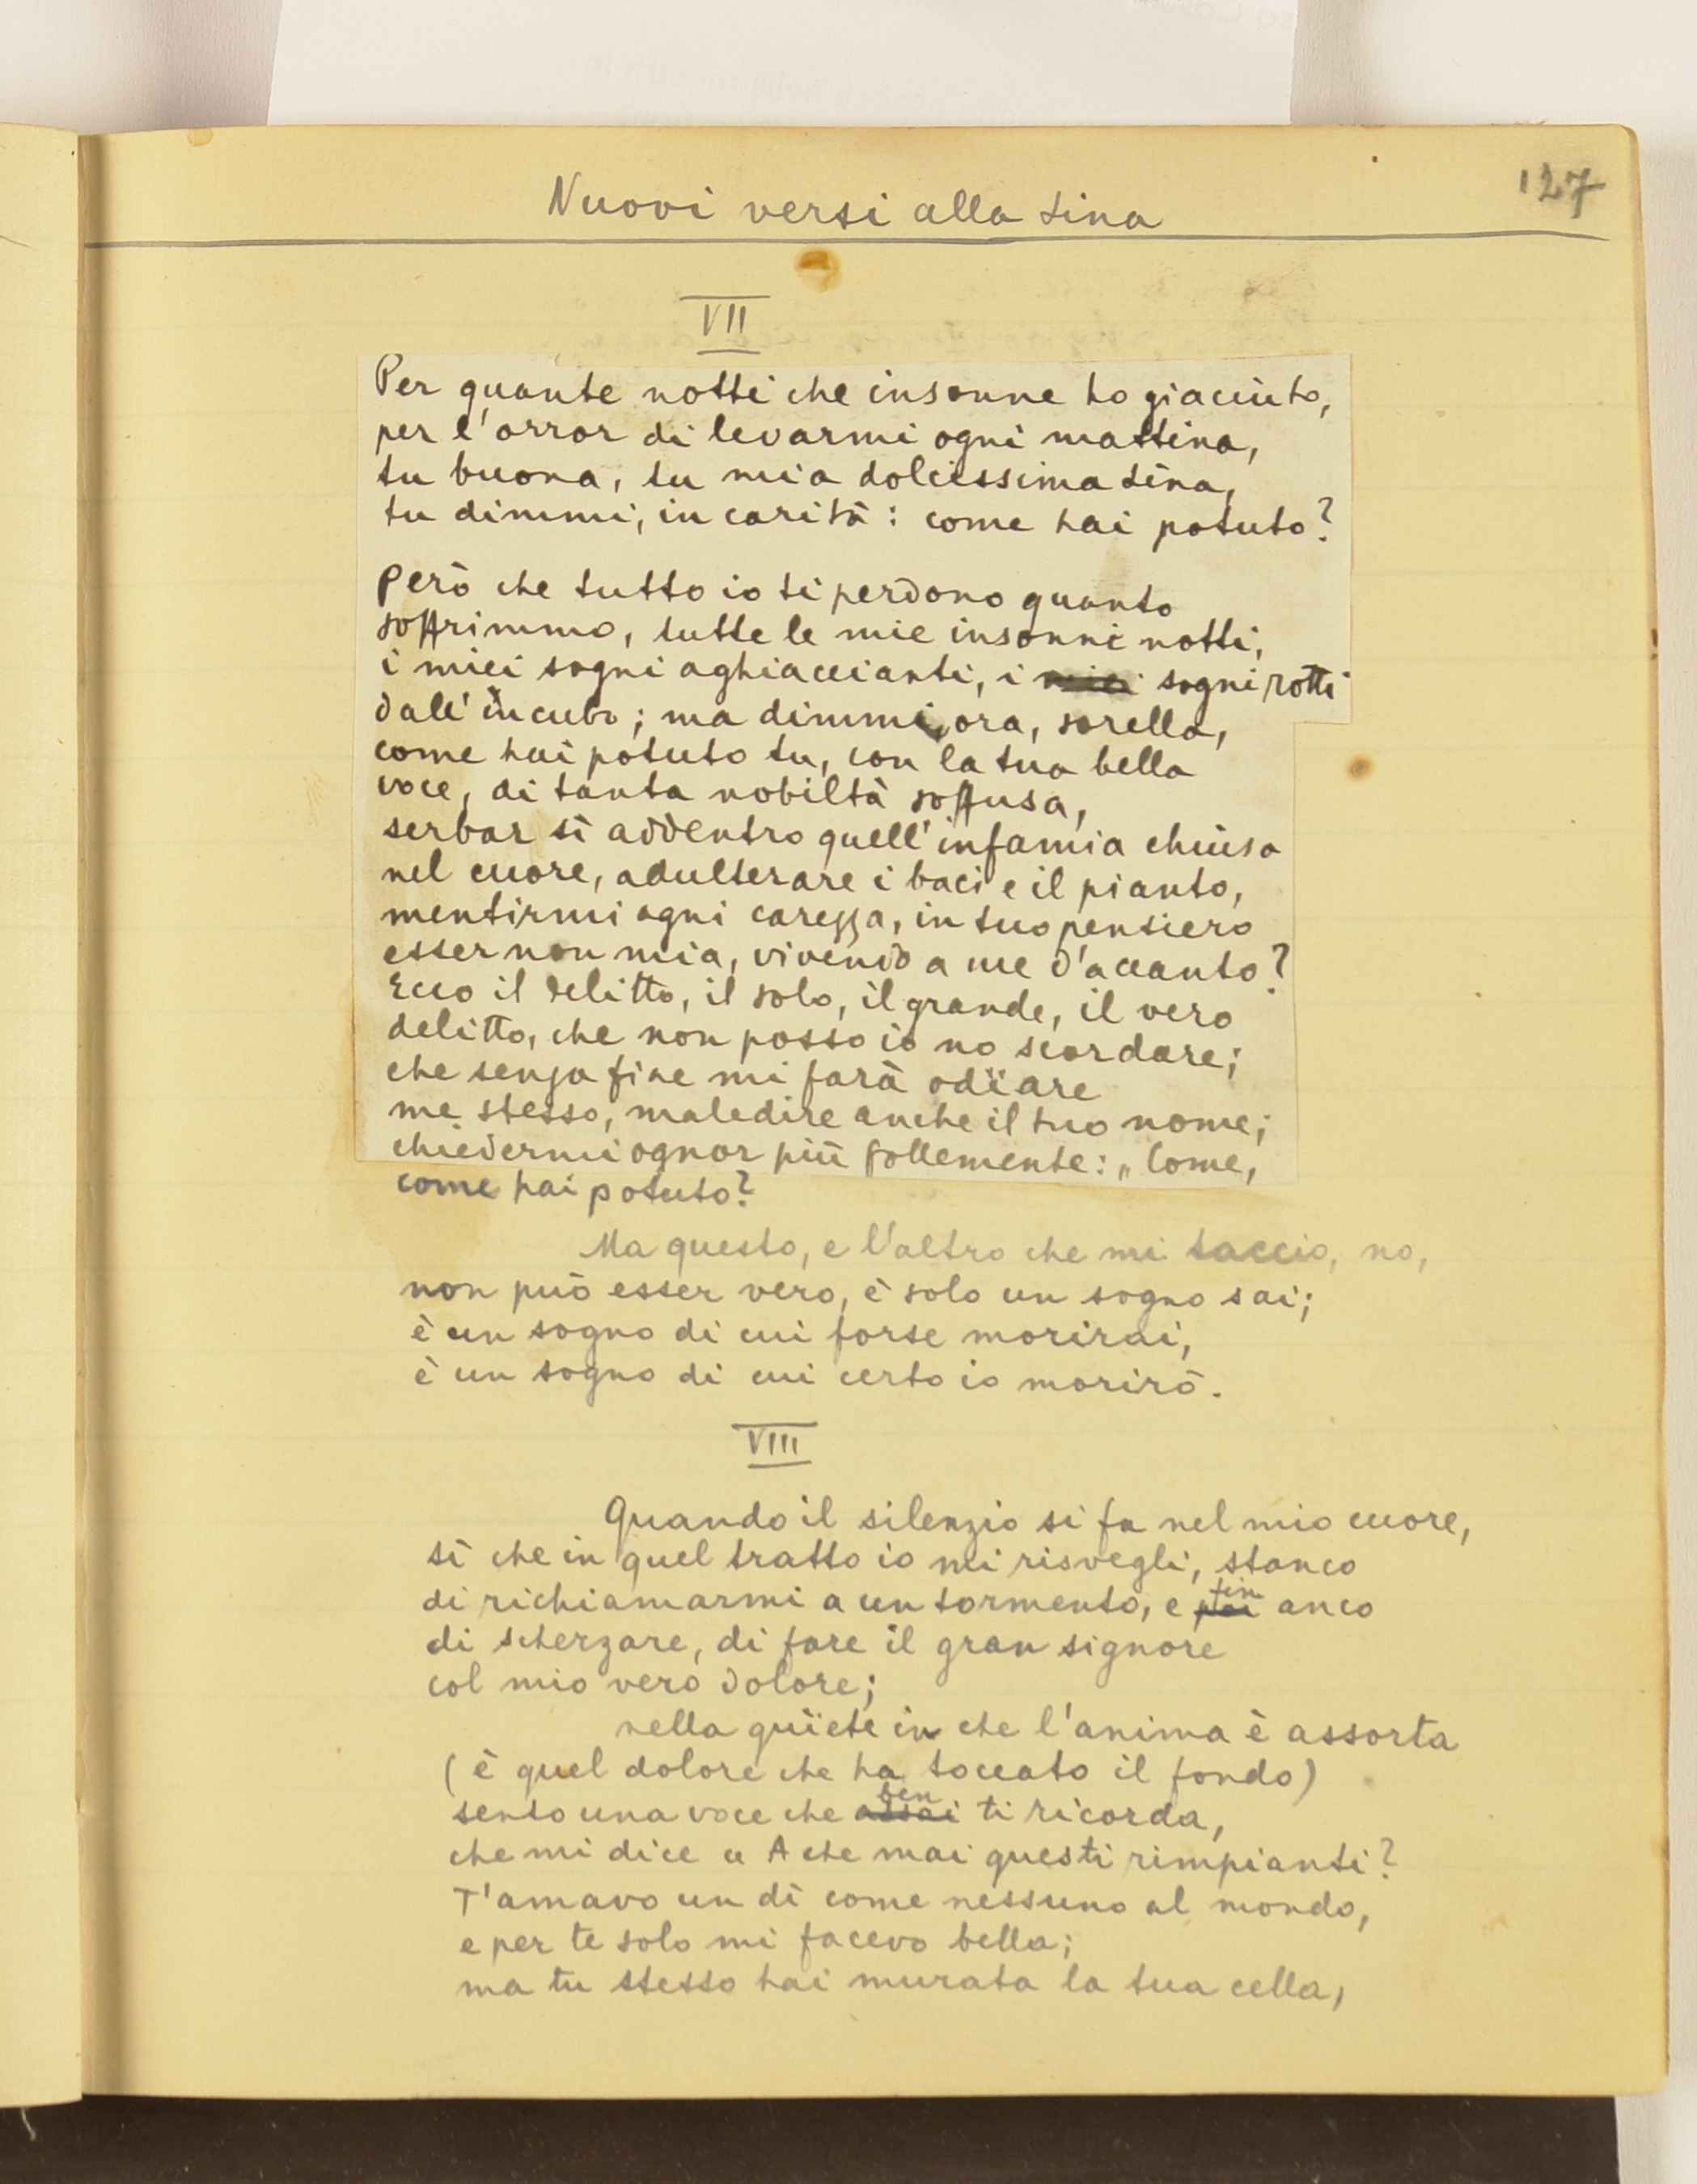 127
Nuovi versi alla Lina
VII
Per quante notti che insonne ho giaciùto,
per l'orror di levarmi ogni mattina,
tu buona, tu mia dolcissima Lina,
tu dimmi, in carità: come hai potuto?
Però che tutto io ti perdono quanto
soffrimmo, tutte le mie insonni notti,
i miei sogni aghiaccianti, i miei sogni rotti
dall' incubo; ma dimmi, ora, sorella,
come hai potuto tu, con la tua bella
voce, di tanta nobiltà soffusa,
serbar sì addentro quell'infamia chiusa
nel cuore, adulterare i baci e il pianto,
mentirmi ogni carezza, in tuo pensiero
esser non mia, vivendo a me d'accanto?
Ecco il delitto, il solo, il grande, il vero
delitto, che non posso io no scordare;
che senza fine mi farà odïare
me stesso, maledire anche il tuo nome;
chiedermi ognor più follemente: „Come,
come hai potuto?
Ma questo, e l'altro che mi taccio, no,
non può esser vero, è solo un sogno sai;
è un sogno di cui forse morirai,
è un sogno di cui certo io morirò.
VIII
Quando il silenzio si fa nel mio cuore,
sì che in quel tratto io mi risvegli, stanco
di richiamarmi a un tormento, e fin anco
di scherzare, di fare il gran signore
col mio vero dolore;
nella quïete in che l'anima è assorta
(è quel dolore che ha toccato il fondo)
sento una voce che assai ben ti ricorda,
che mi dice « A che mai questi rimpianti?
T'amavo un dì come nessuno al mondo,
e per te solo mi facevo bella;
ma tu stesso hai murata la tua cella,